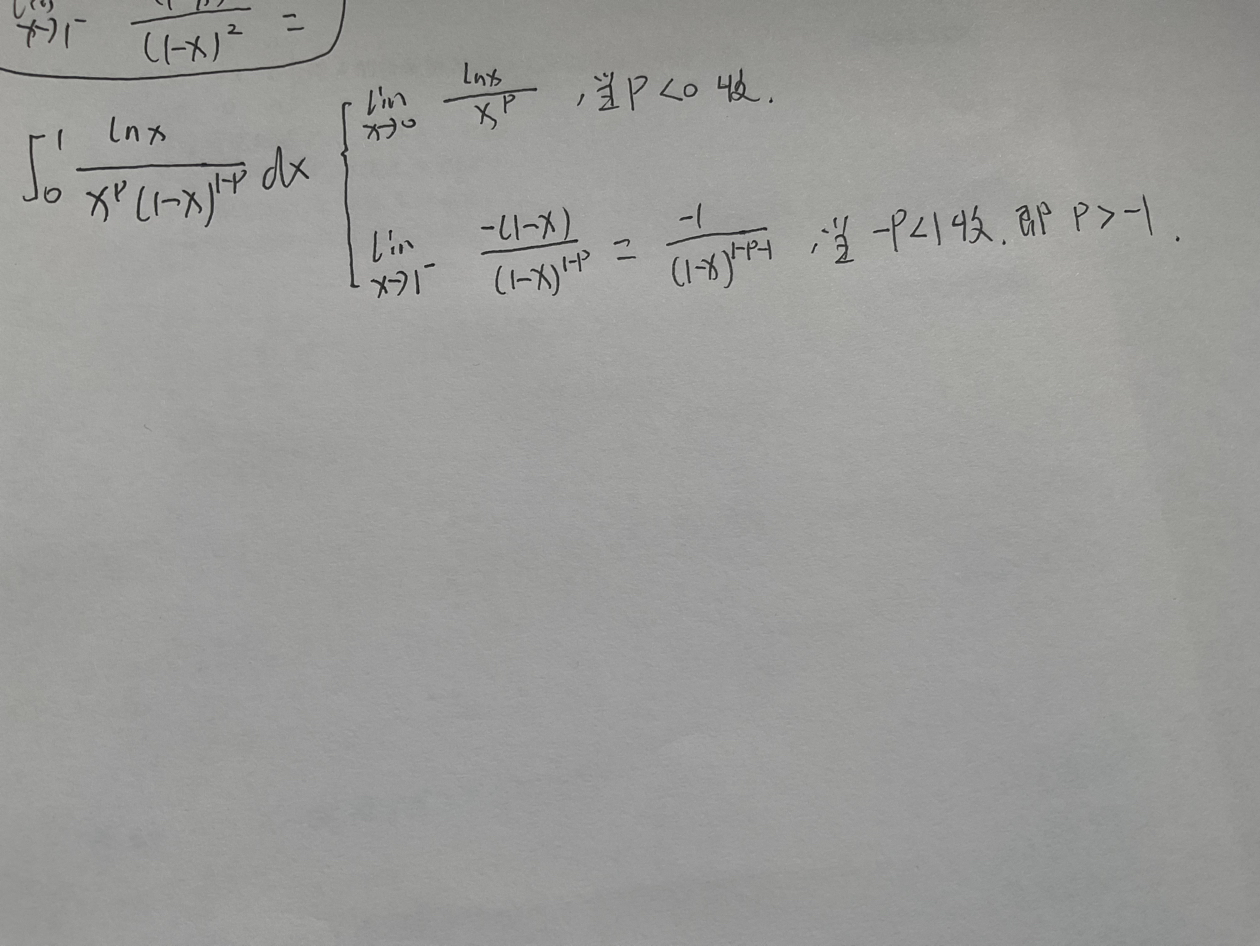 x→1⁻ (1-x)² =
∫₀¹ ln x / (x^p (1-x)^(1-p)) dx
lim x→0 ln x / x^p , 当 P<0 收.
lim x→1⁻ -(1-x) / (1-x)^(1-p) = -1 / (1-x)^(1-p-1) , 当 -P<1 收. 即 P>-1 .